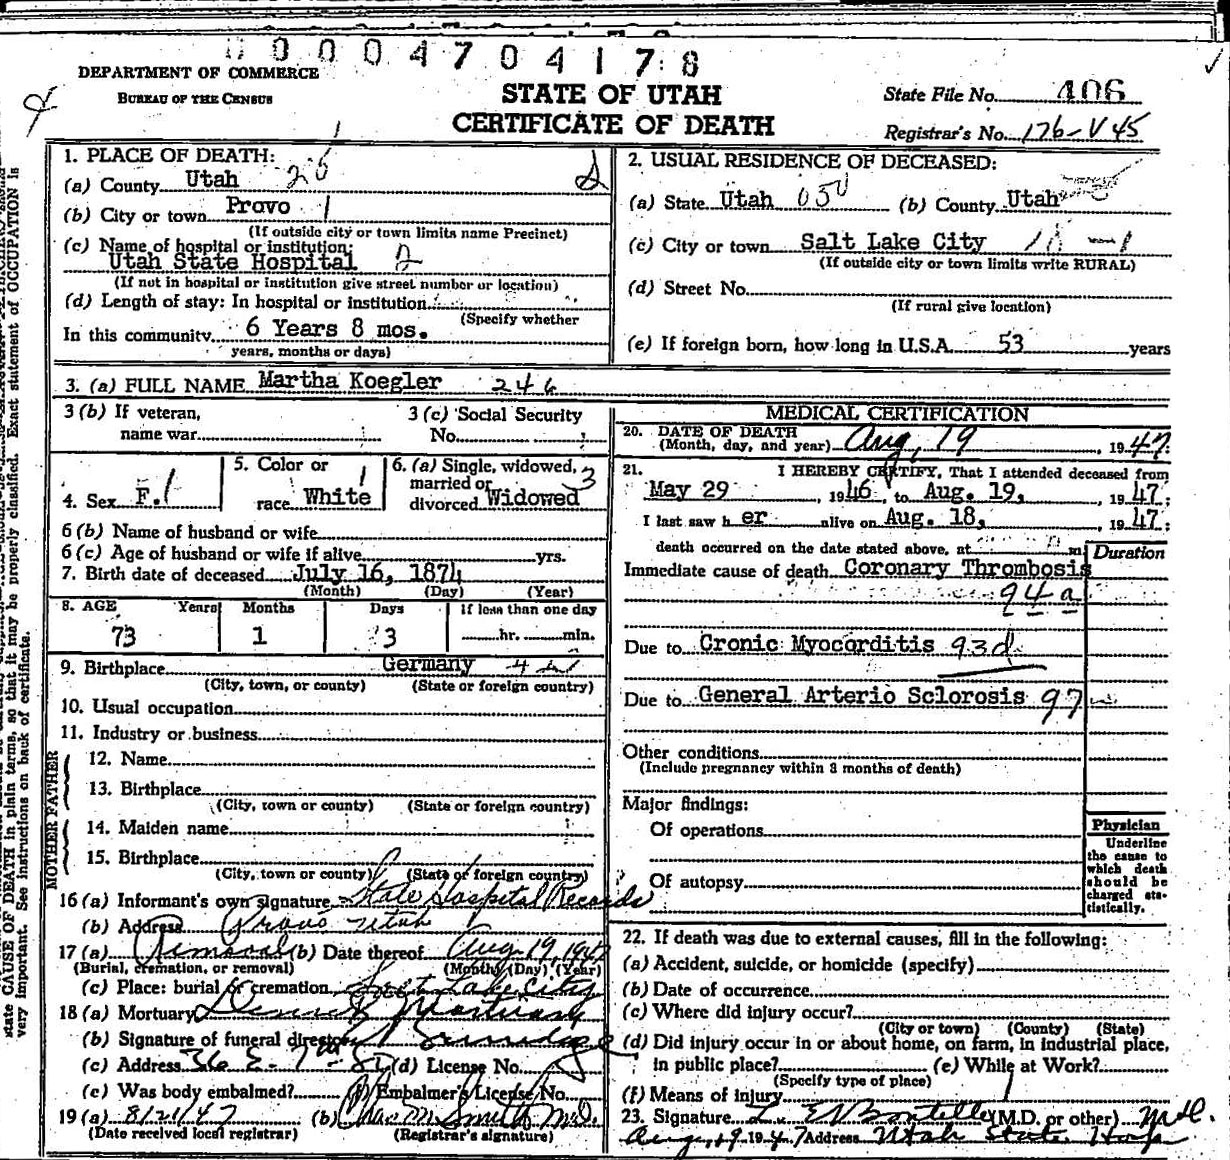 00004704178
DEPARTMENT OF COMMERCE
BUREAU OF THE CENSUS
STATE OF UTAH
CERTIFICATE OF DEATH
State File No. 406
Registrar's No. 176-V45
1. PLACE OF DEATH:
(a) County Utah
(b) City or town Provo 1
(If outside city or town limits name Precinct)
(c) Name of hospital or institution:
Utah State Hospital
(If not in hospital or institution give street number or location)
(d) Length of stay: In hospital or institution
(Specify whether
In this community 6 Years 8 mos.
years, months or days)
2. USUAL RESIDENCE OF DECEASED:
(a) State Utah 050 (b) County Utah
(c) City or town Salt Lake City
(If outside city or town limits write RURAL)
(d) Street No.
(If rural give location)
(e) If foreign born, how long in U.S.A. 53 years
3. (a) FULL NAME Martha Koegler 246
3 (b) If veteran,
name war
3 (c) Social Security
No.
4. Sex F. 1
5. Color or
race White 1
6. (a) Single, widowed, 3
married or
divorced Widowed
6 (b) Name of husband or wife
6 (c) Age of husband or wife if alive yrs.
7. Birth date of deceased July 16, 1874
(Month) (Day) (Year)
8. AGE Years Months Days If less than one day
73 1 3 hr. min.
9. Birthplace Germany
(City, town, or county) (State or foreign country)
10. Usual occupation
11. Industry or business
FATHER
12. Name
13. Birthplace
(City, town or county) (State or foreign country)
MOTHER
14. Maiden name
15. Birthplace
(City, town or county) (State or foreign country)
16 (a) Informant's own signature State Hospital Records
(b) Address Provo Utah
17 (a) Removal (b) Date thereof Aug 19, 1947
(Burial, cremation, or removal) (Month) (Day) (Year)
(c) Place: burial or cremation Salt Lake City
18 (a) Mortuary Mortuary
(b) Signature of funeral director
(c) Address 36 E. 7th So (d) License No.
(e) Was body embalmed? (f) Embalmer's License No.
19 (a) 8/21/47 (b) Chas M. Smith M.D.
(Date received local registrar) (Registrar's signature)
MEDICAL CERTIFICATION
20. DATE OF DEATH
(Month, day, and year) Aug, 19, 1947.
21. I HEREBY CERTIFY, That I attended deceased from
May 29, 1946, to Aug. 19, 1947;
I last saw her alive on Aug. 18, 1947;
death occurred on the date stated above, at m.
Duration
Immediate cause of death Coronary Thrombosis
94a
Due to Cronic Myocorditis 93d
Due to General Arterio Sclorosis 97
Other conditions
(Include pregnancy within 3 months of death)
Major findings:
Of operations
Of autopsy
Physician
Underline
the cause to
which death
should be
charged sta-
tistically.
22. If death was due to external causes, fill in the following:
(a) Accident, suicide, or homicide (specify)
(b) Date of occurrence
(c) Where did injury occur?
(City or town) (County) (State)
(d) Did injury occur in or about home, on farm, in industrial place,
in public place? (e) While at Work?
(Specify type of place)
(f) Means of injury
23. Signature (M.D. or other) M.D.
Aug, 19 1947 Address Utah State Hosp
state CAUSE OF DEATH in plain terms, so that it may be properly classified. Exact statement of OCCUPATION is
very important. See instructions on back of certificate.